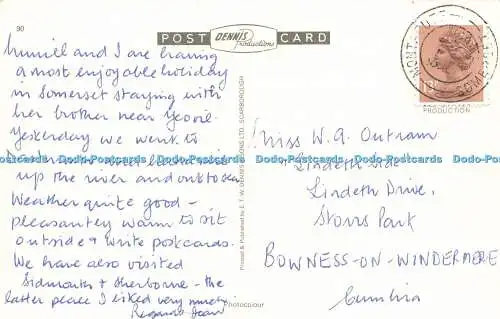 90
POST DENNIS Productions CARD
Muriel and I are having
a most enjoyable holiday
in Somerset staying with
her brother near Yeovil.
Yesterday we went to
up the river and out to sea
Weather quite good –
pleasantly warm to sit
outside & write postcards.
We have also visited
Sidmouth & Sherborne – the
latter place I liked very much.
Regards Jean
Printed & Published by E. T. W. DENNIS & SONS LTD. SCARBOROUGH
Photocolour
MONTACUTE
SOMERSET
13P
PRODUCTION
Miss W. A. Outram
"Lindeth
Lindeth Drive,
Storrs Park
BOWNESS-ON-WINDERMERE
Cumbria
Dodo-Postcards Dodo-Postcards Dodo-Postcards Dodo-Postcards Dodo-Postcards